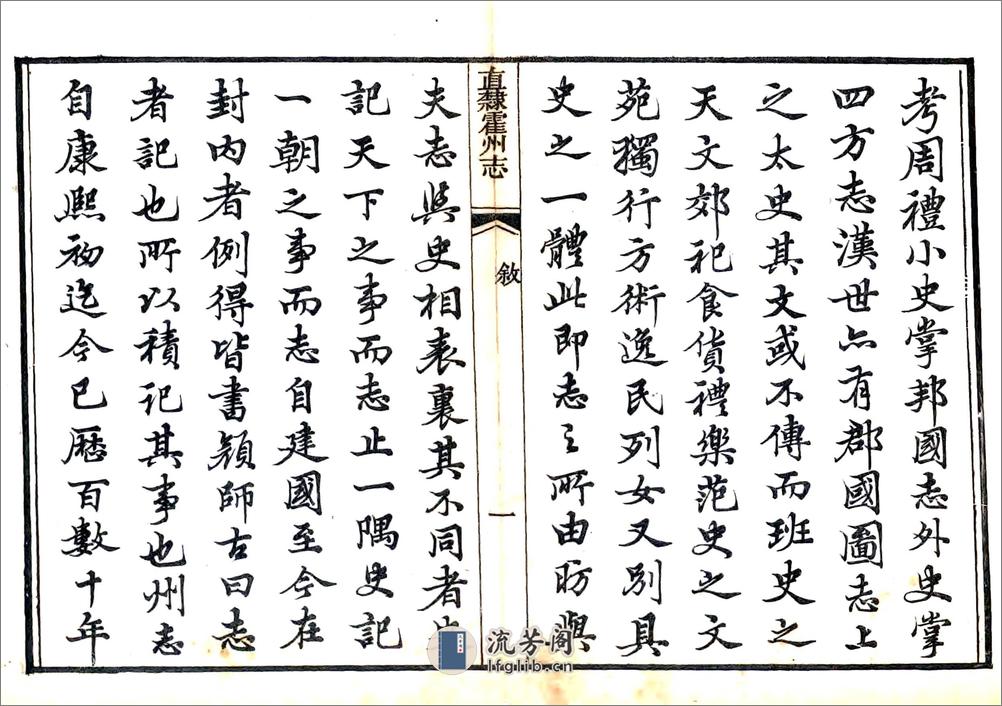 考周禮小史掌邦國志外史掌
四方志漢世亦有郡國圖志上
之太史其文或不傳而班史之
天文郊祀食貨禮樂范史之文
苑獨行方術逸民列女又別具
史之一體此即志之所由昉與
直隸霍州志
敘
一
夫志與史相表裏其不同者
記天下之事而志止一隅史記
一朝之事而志自建國至今在
封内者例得皆書顏師古曰志
者記也所以積記其事也州志
自康熙初迄今已歷百數十年
流芳阁
lfglib.cn